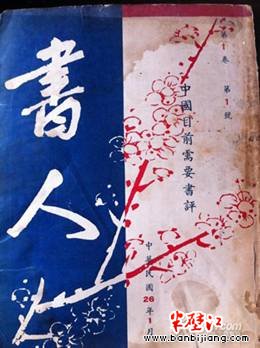 第1卷 第1號
中國目前需要書評
書人
中華民國26年1月
半壁江
www.banbijiang.com